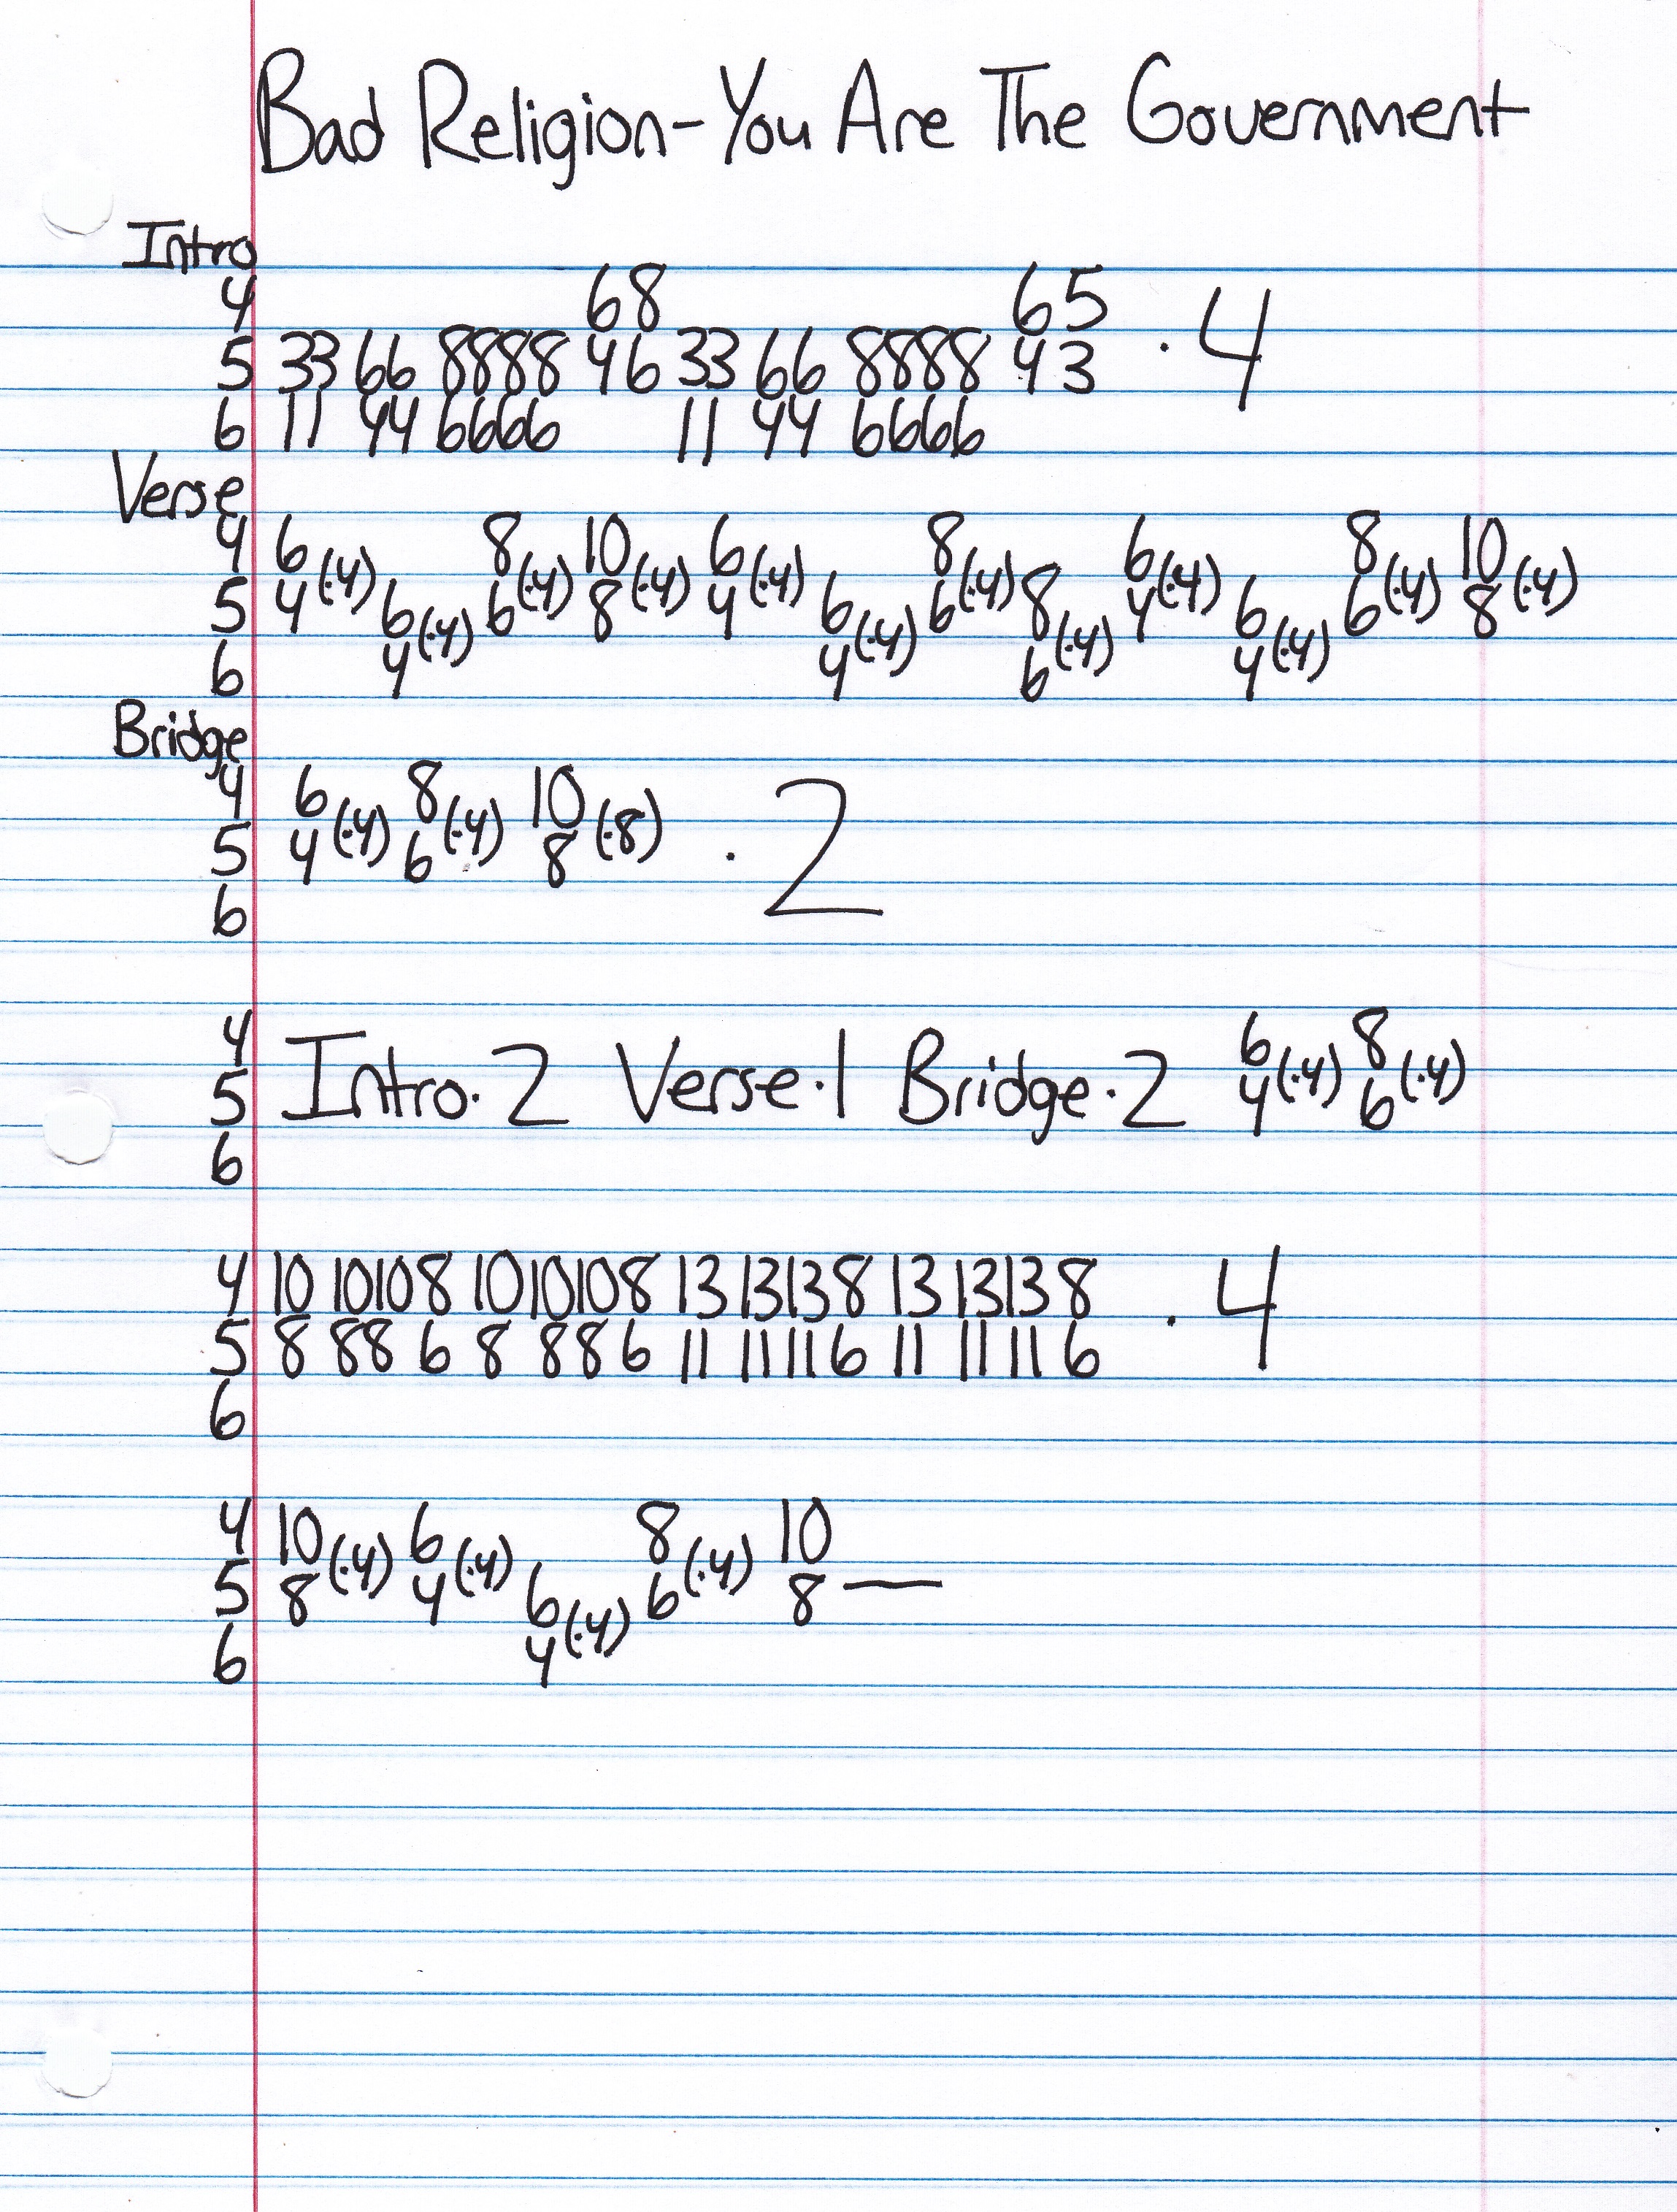 Bad Religion-You Are The Government
Intro
4 68 65
5 33 66 8888 46 33 66 8888 43 ·4
6 11 44 6666 11 44 6666
Verse
4 6 8 10 6 8 6 8 10
5 4(·4) 6 6(·4) 8(·4) 4(·4) 6 6(·4) 8 4(·4) 6 6(·4) 8(·4)
6 4(·4) 4(·4) 6(·4) 4(·4)
Bridge
4 6 8 10
5 4(·4) 6(·4) 8(·8) ·2
6
4 6 8
5 Intro·2 Verse·1 Bridge·2 4(·4) 6(·4)
6
4 10 10108 10 10108 13 13138 13 13138
5 8 88 6 8 886 11 11116 11 11116 ·4
6
4 10 6 8 10
5 8(·4) 4(·4) 6 6(·4) 8 —
6 4(·4)